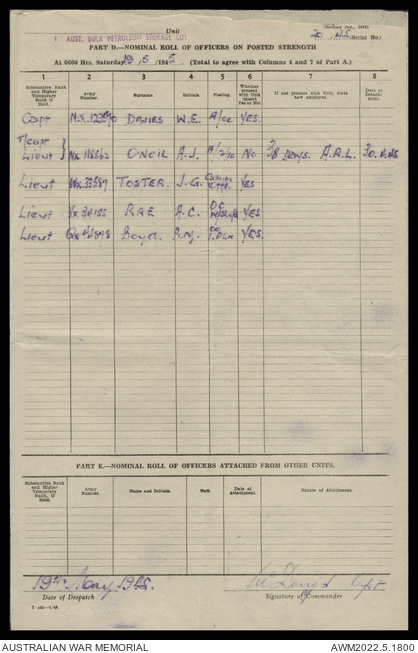 (Revised Jan., 1945)
Unit
1 AUST. BULK PETROLEUM STORAGE COY
20 (Serial No.)
PART D.—NOMINAL ROLL OF OFFICERS ON POSTED STRENGTH
At 0600 Hrs. Saturday 19/5/1945 (Total to agree with Columns 4 and 7 of Part A.)
1 2 3 4 5 6 7 8
Substantive Rank and Higher Temporary Rank if Held. Army Number. Surname. Initials. Posting. Whether present with Unit (Insert Yes or No) If not present with Unit, state how employed. Date of Detachment.
Capt DAVIES W.E. A/OC YES.
T/Capt
Lieut O'NEIL A.J. A/2/IC NO 38 Days. A.R.L.
Lieut FOSTER J.G. YES
Lieut VX RAE A.C. OC YES
Lieut QX Boyd. OC YES.
PART E.—NOMINAL ROLL OF OFFICERS ATTACHED FROM OTHER UNITS.
Substantive Rank and Higher Temporary Rank, if Held. Army Number. Name and Initials. Unit. Date of Attachment. Nature of Attachment.
19th May 1945. Capt
Date of Despatch Signature of Commander
AUSTRALIAN WAR MEMORIAL AWM2022.5.1800